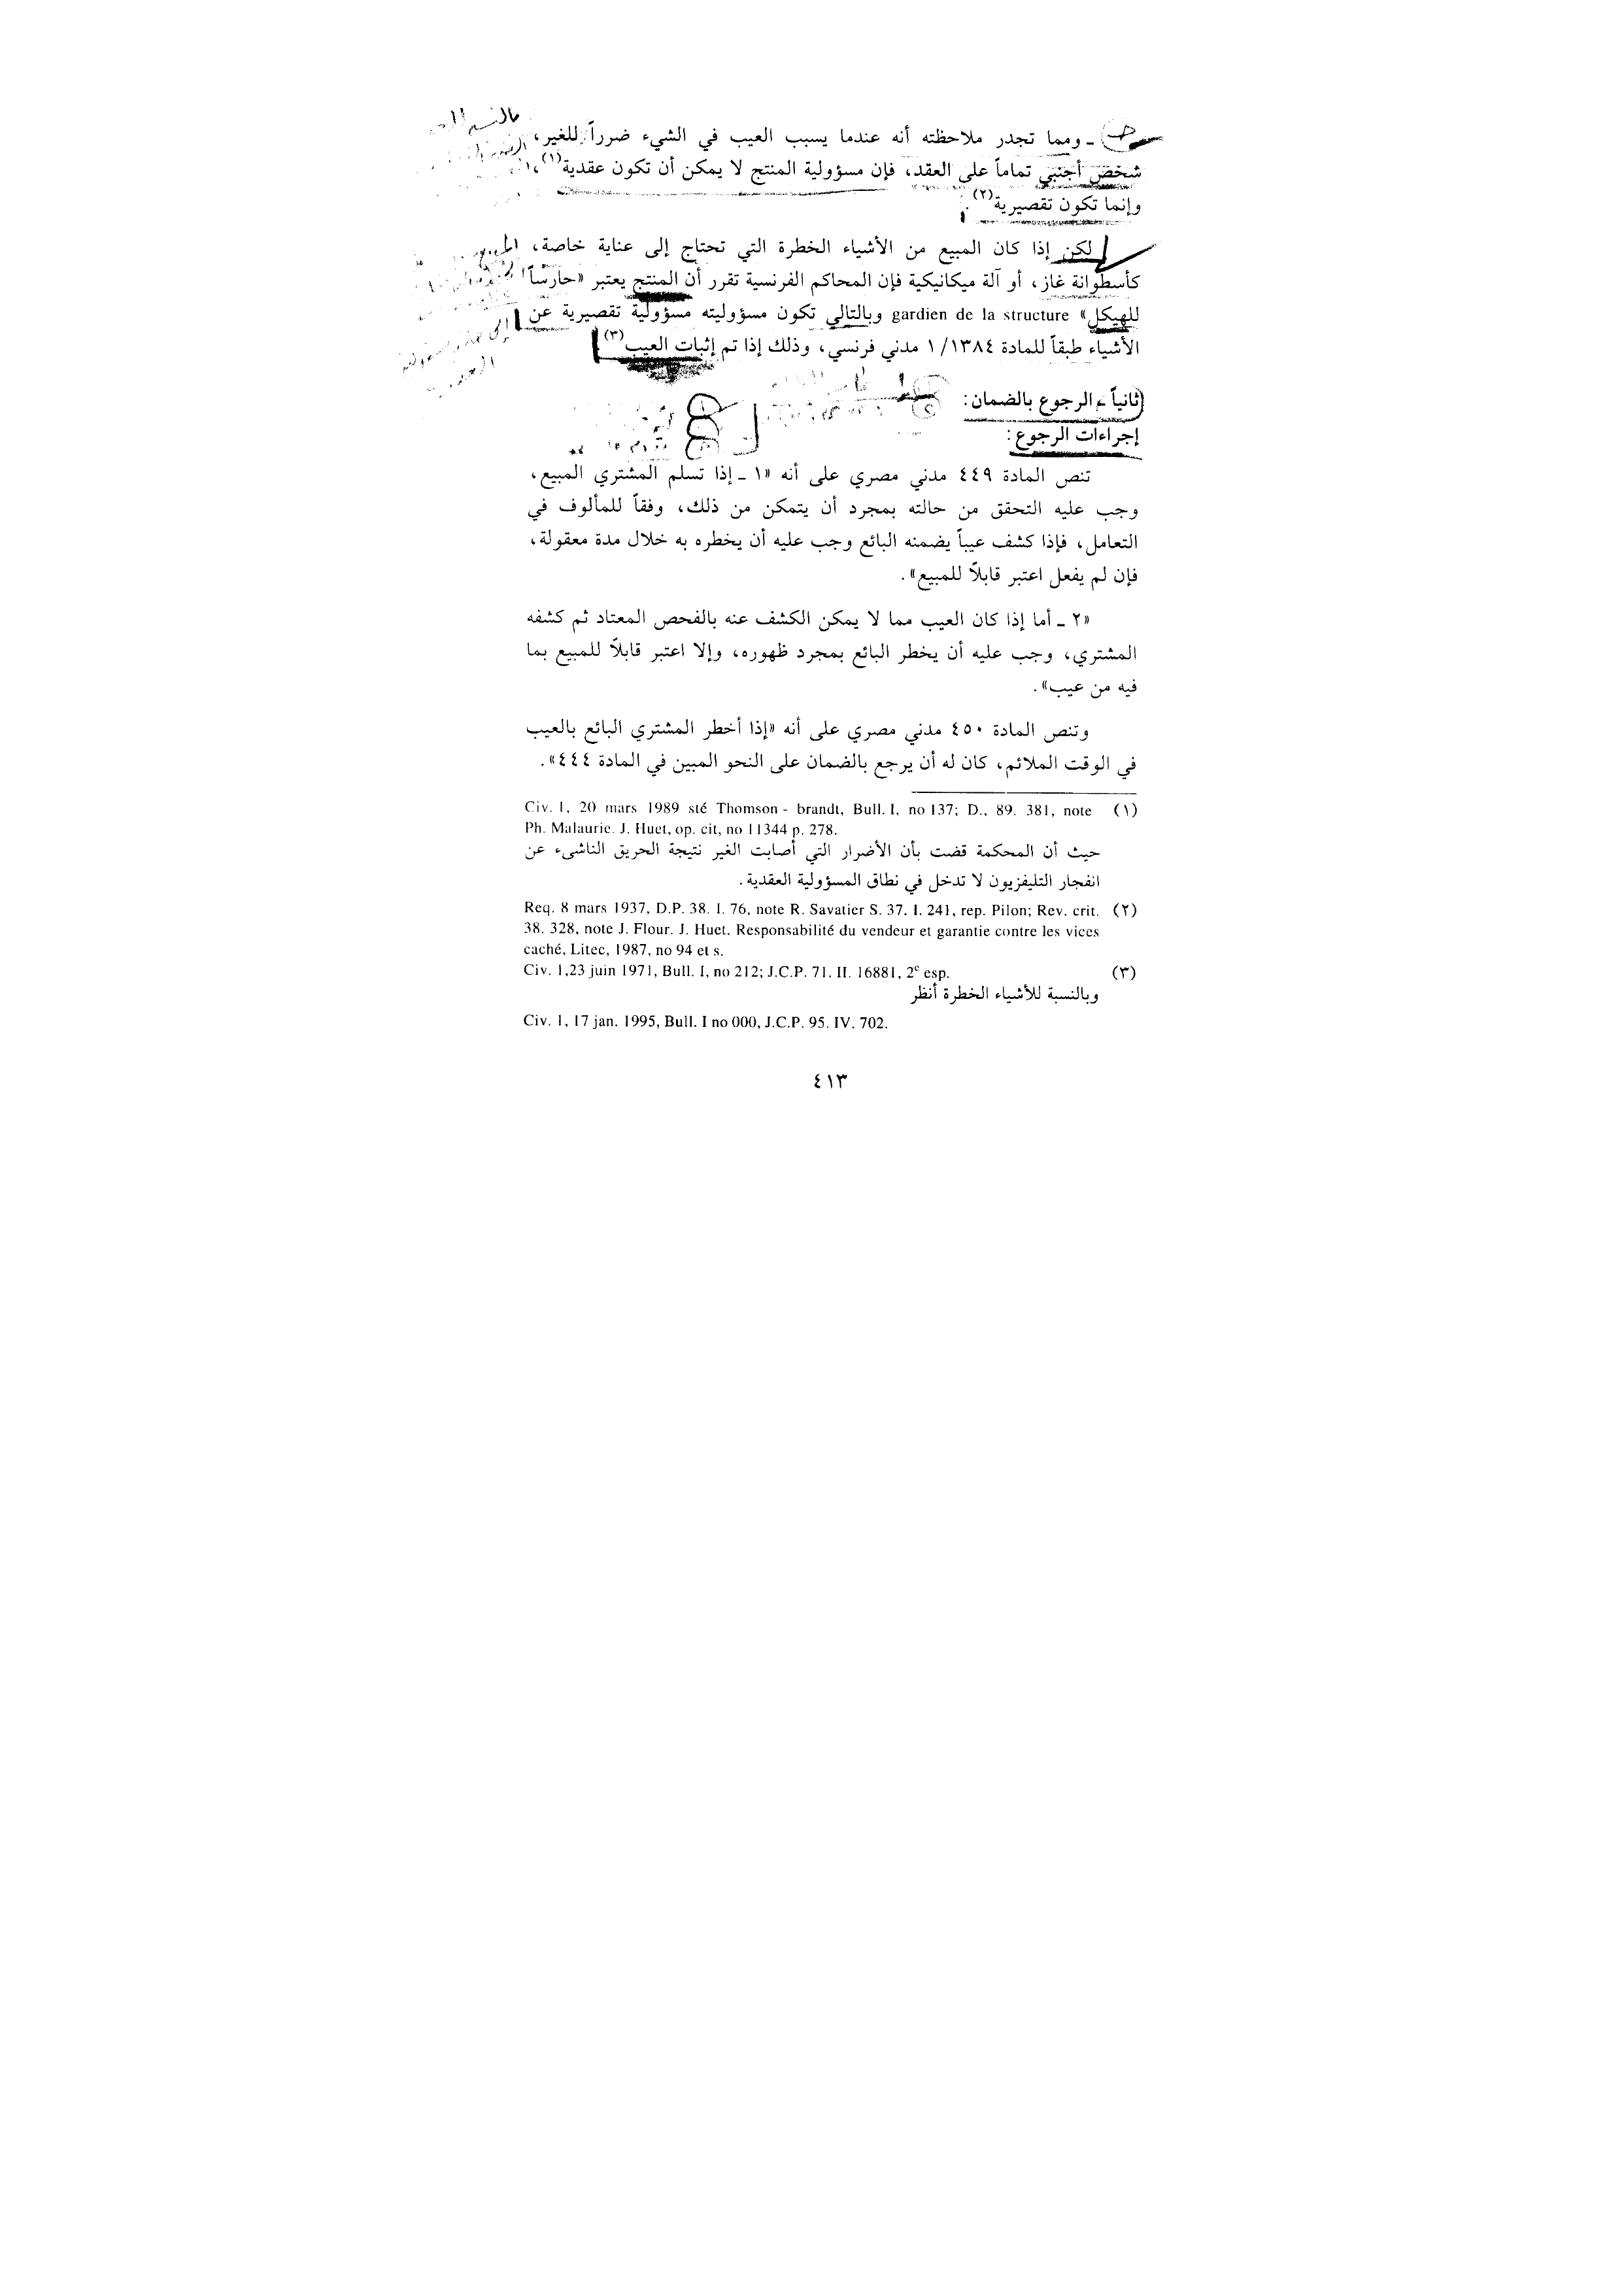 ـ ومما تجدر ملاحظته أنه عندما يسبب العيب في الشيء ضرراً للغير،
شخص أجنبي تماماً على العقد، فإن مسؤولية المنتج لا يمكن أن تكون عقدية(١)،
وإنما تكون تقصيرية(٢).
لكن إذا كان المبيع من الأشياء الخطرة التي تحتاج إلى عناية خاصة،
كأسطوانة غاز، أو آلة ميكانيكية فإن المحاكم الفرنسية تقرر أن المنتج يعتبر «حارساً
للهيكل» gardien de la structure وبالتالي تكون مسؤوليته مسؤولية تقصيرية عن
الأشياء طبقاً للمادة ١/١٣٨٤ مدني فرنسي، وذلك إذا تم إثبات العيب(٣)
ثانياً - الرجوع بالضمان:
إجراءات الرجوع:
تنص المادة ٤٤٩ مدني مصري على أنه «١ ـ إذا تسلم المشتري المبيع،
وجب عليه التحقق من حالته بمجرد أن يتمكن من ذلك، وفقاً للمألوف في
التعامل، فإذا كشف عيباً يضمنه البائع وجب عليه أن يخطره به خلال مدة معقولة،
فإن لم يفعل اعتبر قابلاً للمبيع».
«٢ ـ أما إذا كان العيب مما لا يمكن الكشف عنه بالفحص المعتاد ثم كشفه
المشتري، وجب عليه أن يخطر البائع بمجرد ظهوره، وإلا اعتبر قابلاً للمبيع بما
فيه من عيب».
وتنص المادة ٤٥٠ مدني مصري على أنه «إذا أخطر المشتري البائع بالعيب
في الوقت الملائم، كان له أن يرجع بالضمان على النحو المبين في المادة ٤٤٤».
(١) Civ. 1, 20 mars 1989 sté Thomson - brandt, Bull. I, no 137; D., 89. 381, note
Ph. Malaurie. J. Huet, op. cit, no 11344 p. 278.
حيث أن المحكمة قضت بأن الأضرار التي أصابت الغير نتيجة الحريق الناشىء عن
انفجار التليفزيون لا تدخل في نطاق المسؤولية العقدية.
(٢) Req. 8 mars 1937, D.P. 38. I. 76, note R. Savatier S. 37. I. 241, rep. Pilon; Rev. crit.
38. 328, note J. Flour. J. Huet. Responsabilité du vendeur et garantie contre les vices
caché, Litec, 1987, no 94 et s.
(٣) Civ. 1,23 juin 1971, Bull. I, no 212; J.C.P. 71. II. 16881, 2e esp.
وبالنسبة للأشياء الخطرة أنظر
Civ. 1, 17 jan. 1995, Bull. I no 000, J.C.P. 95. IV. 702.
٤١٣